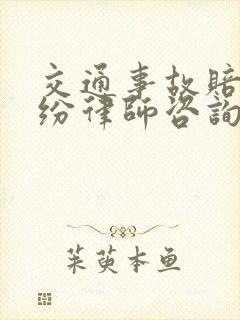 交通事故賠
纷律師咨詢
茱萸本鱼